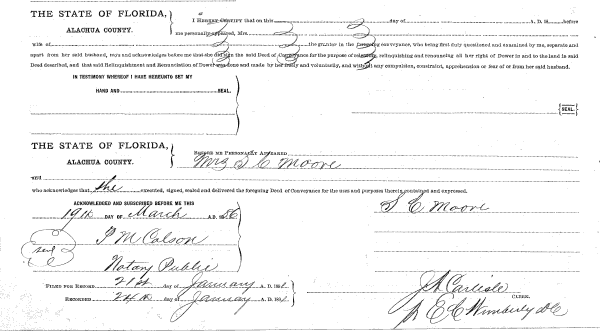 THE STATE OF FLORIDA,
ALACHUA COUNTY.
I HEREBY CERTIFY that on this day of A. D. 18 before
me personally appeared, Mrs.
wife of the grantor in the foregoing conveyance, who being first duly questioned and examined by me, separate and
apart from her said husband, says and acknowledges before me that she did sign the said Deed of Conveyance for the purpose of relinquishing and renouncing all her right of Dower in and to the land in said
Deed described, and that said Relinquishment and Renunciation of Dower was done and made by her freely and voluntarily, and without any compulsion, constraint, apprehension or fear of or from her said husband.
IN TESTIMONY WHEREOF I HAVE HEREUNTO SET MY
HAND AND SEAL.
SEAL.
THE STATE OF FLORIDA,
ALACHUA COUNTY.
BEFORE ME PERSONALLY APPEARED
Mrs S C Moore
and
who acknowledges that she executed, signed, sealed and delivered the foregoing Deed of Conveyance for the uses and purposes therein contained and expressed.
ACKNOWLEDGED AND SUBSCRIBED BEFORE ME THIS
19th DAY OF March A.D. 1886
S C Moore
seal
P M Colson
Notary Public
FILED FOR RECORD 21st day of January A. D. 188
RECORDED 24th day of January A. D. 188
J A Carlisle
CLERK.
E C Wimberly DC